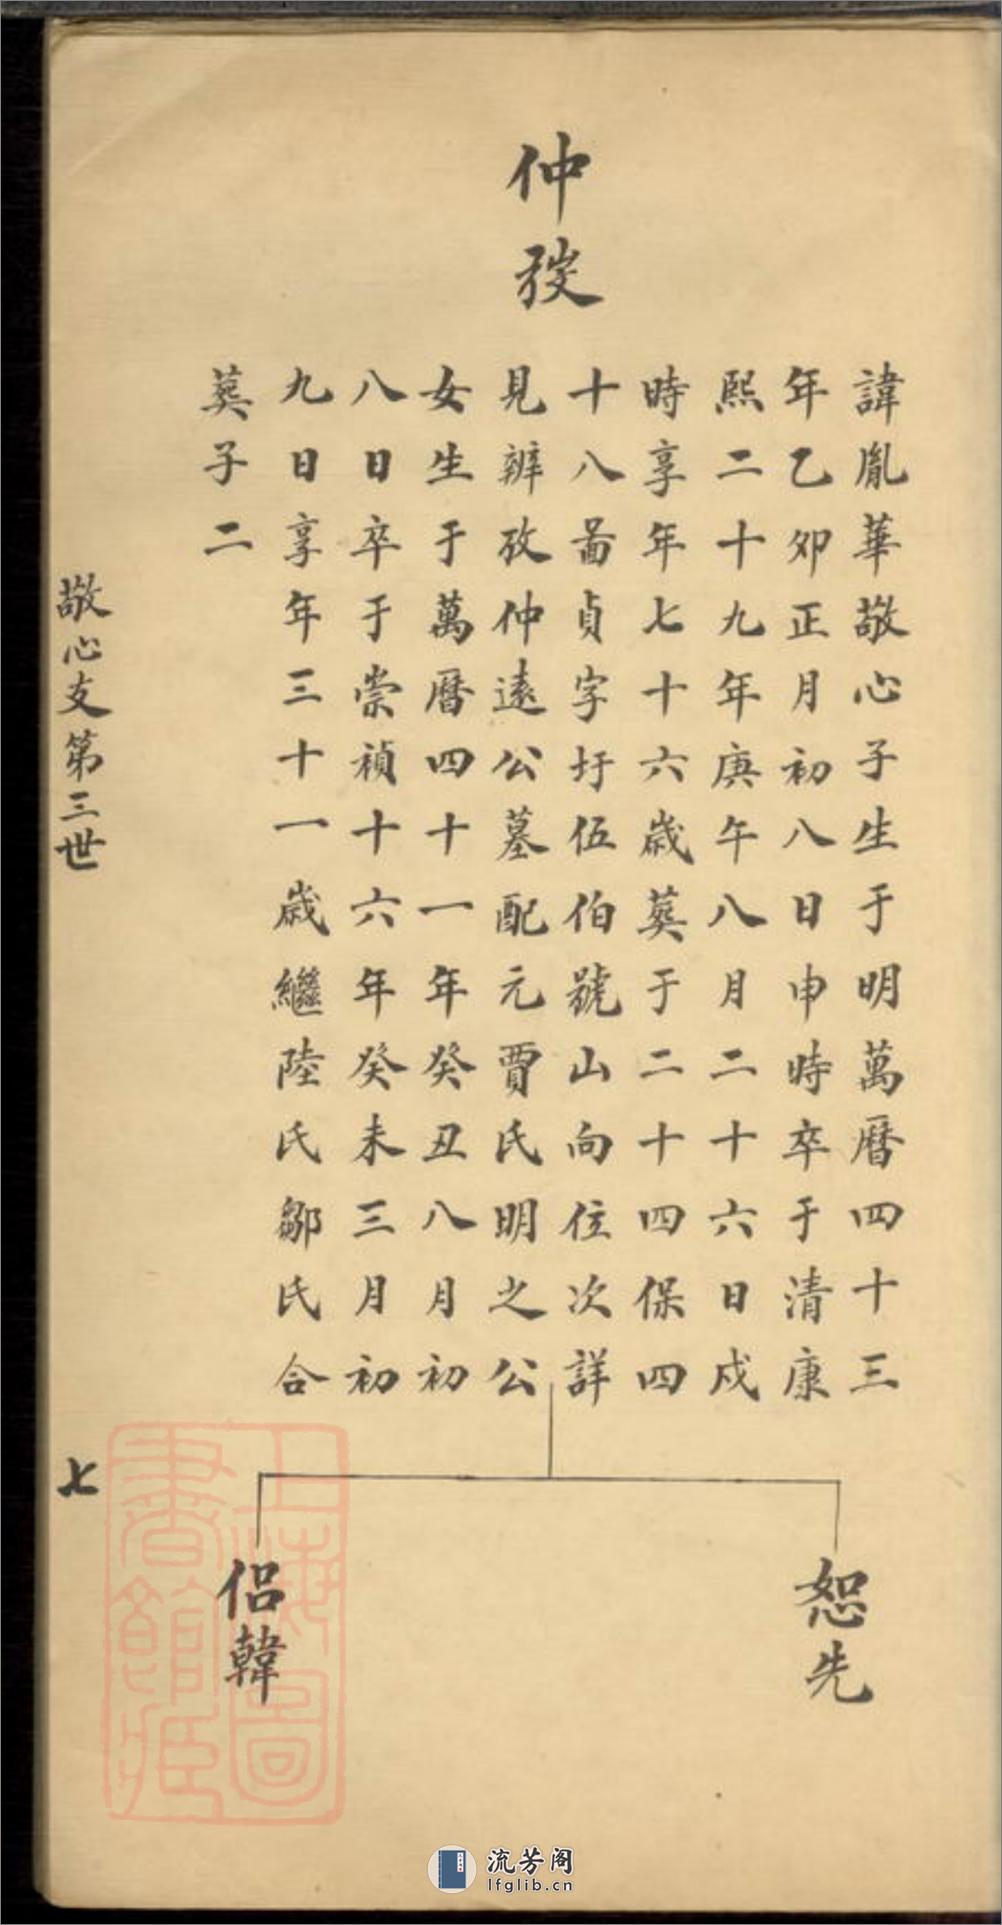 仲
諱胤華敬心子生于明萬曆四十三
年乙卯正月初八日申時卒于清康
熙二十九年庚午八月二十六日戌
時享年七十六歲葬于二十四保四
十八啚貞字圩伍伯號山向位次詳
見辨攷仲遠公墓配元賈氏明之公
女生于萬曆四十一年癸丑八月初
八日卒于崇禎十六年癸未三月初
九日享年三十一歲繼陸氏鄒氏合
葬子二
恕先
侶韓
敬心支第三世
七
上海圖
書館藏
流芳阁
lfglib.cn